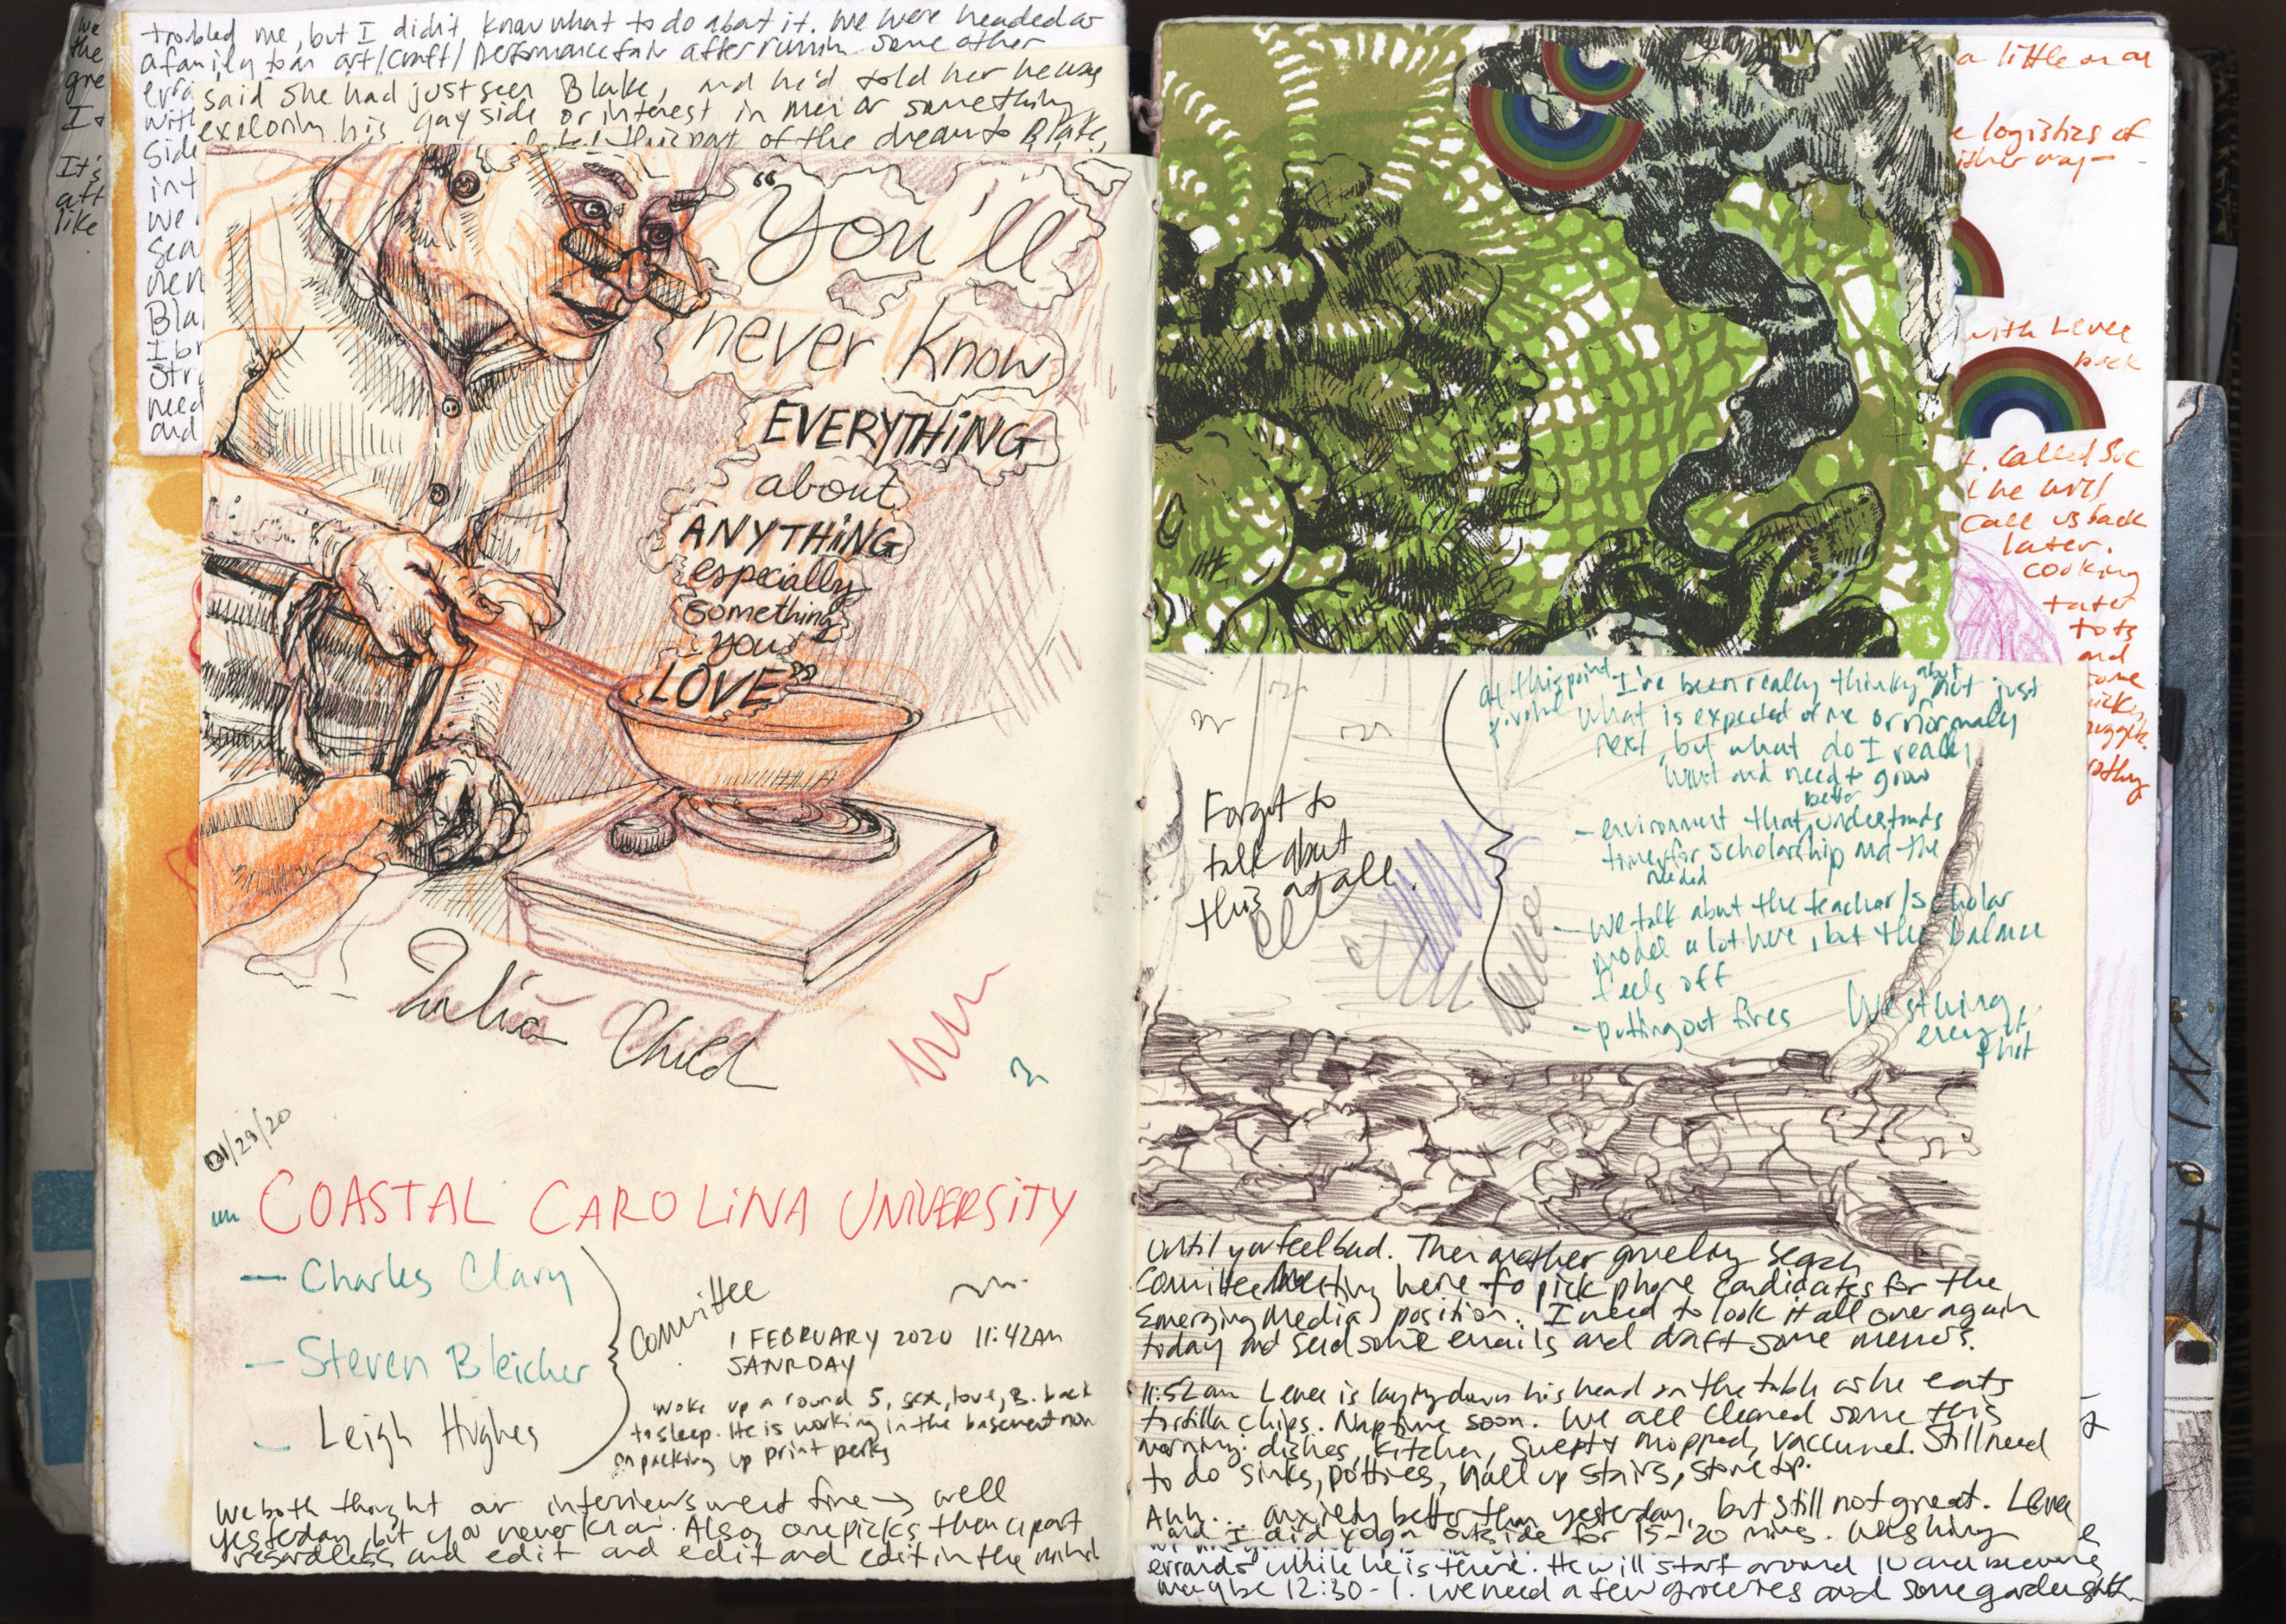 We
the
gre
I
It's
att
like
troubled me, but I didn't know what to do about it. We were headed as
a family to an art/craft/performance fair after runnin some other
erra
with
side
int
we
sea
nen
Bla
I br
Str
need
and
said she had just seen Blake, and he'd told her he was
exploring his gay side or interest in men or something
this part of the dream to Blake,
"You'll
never know
EVERYTHING
about
ANYTHING
especially
something
you
LOVE"
Julia Child
01/29/20
COASTAL CAROLINA UNIVERSITY
— Charles Clary
— Steven Bleicher
— Leigh Hughes
committee
1 FEBRUARY 2020 11:42AM
SANRDAY
woke up around 5, sex, love, B. back
to sleep. He is working in the basement now
on packing up print perks
We both thought our interviews went fine → well
yesterday, but you never know. Also, one picks them apart
regardless and edit and edit and edit in the mind
a little or
e logistics of
ither way —
with Levee
back
L. called
he will
call us back
later.
cooking
tater
tots
and
some
Forgot to
talk about
this at all.
at this point I've been really thinking about not just
pivotal what is expected of me or normally
next, but what do I really
want and need to grow
— environment that better understands
time for scholarship and the
needed
— we talk about the teacher/scholar
model a lot here, but the balance
feels off
— putting out fires
until you feel bad. Then another grueling search
Comittee Meeting here to pick phone candidates for the
Emerging Media position. I need to look it all over again
today and send some emails and draft some memos.
11:52am Levee is laying down his head on the table as he eats
tortilla chips. Naptime soon. We all cleaned some this
morning: dishes, kitchen, swept & mopped, vaccumed. Still need
to do sinks, potties, hall up stairs, stove top.
Ahh... anxiety better than yesterday, but still not great. Levee
and I did yoga outside for 15-20 mins. Washing
errands while he is there. He will start around 10 and
maybe 12:30-1. We need a few groceries and some garden